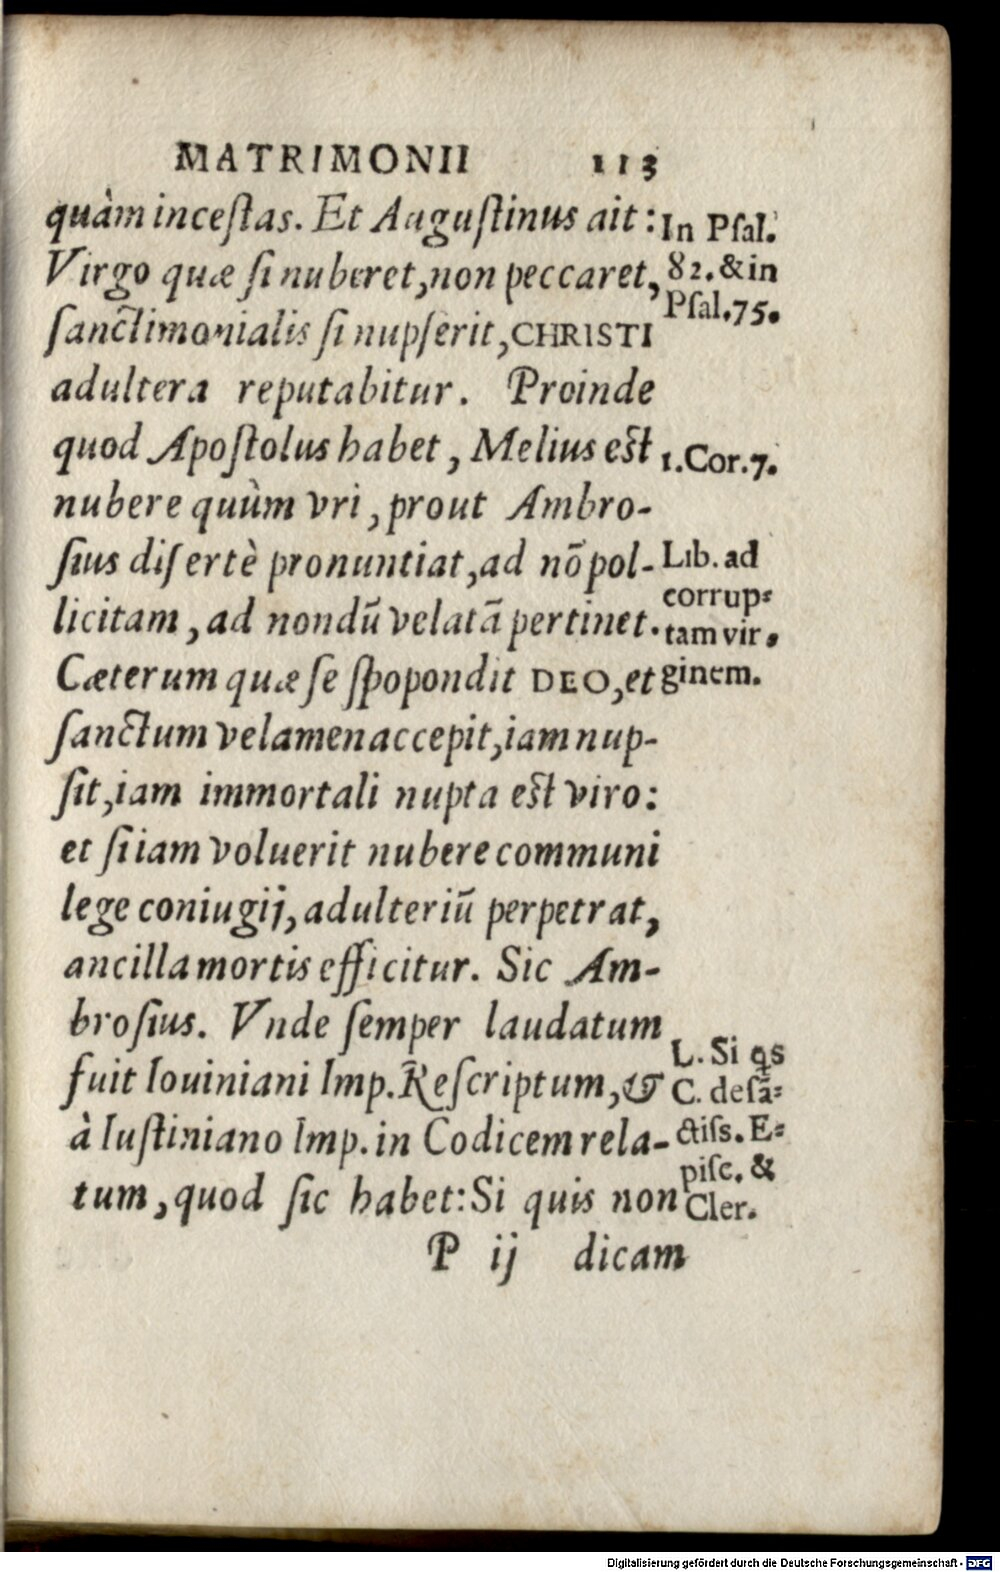 MATRIMONII 113
quàm incestas. Et Augustinus ait:
Virgo quæ si nuberet, non peccaret,
sanctimonialis si nupserit, CHRISTI
adultera reputabitur. Proinde
quod Apostolus habet, Melius est
nubere quùm vri, prout Ambro-
sius disertè pronuntiat, ad nõ pol-
licitam, ad nondũ velatã pertinet.
Cæterum quæ se spopondit DEO, et
sanctum velamen accepit, iam nup-
sit, iam immortali nupta est viro:
et si iam voluerit nubere communi
lege coniugij, adulteriũ perpetrat,
ancilla mortis efficitur. Sic Am-
brosius. Vnde semper laudatum
fuit Iouiniani Imp. Rescriptum, &
à Iustiniano Imp. in Codicem rela-
tum, quod sic habet: Si quis non
P ij dicam
In Psal.
82. & in
Psal. 75.
1. Cor. 7.
Lib. ad
corrup-
tam vir.
ginem.
L. Si qs
C. de sã-
ctiss. E-
pisc. &
Cler.
Digitalisierung gefördert durch die Deutsche Forschungsgemeinschaft - DFG